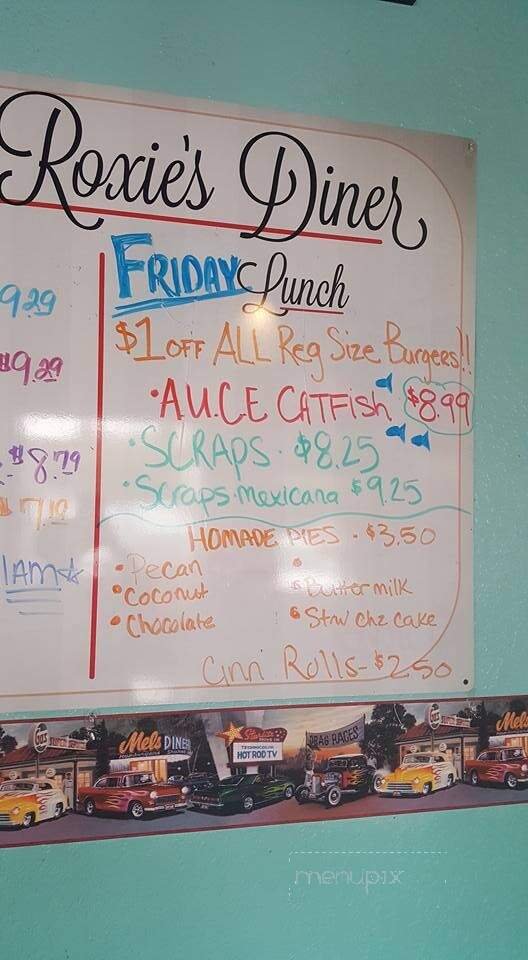 Roxie's Diner
FRIDAY Lunch
$1 OFF ALL Reg Size Burgers!!
• A.U.C.E CATFISH $8.99
• SCRAPS - $8.25
• Scraps Mexicana $9.25
HOMADE PIES - $3.50
• Pecan
• Coconut
• Buttermilk
• Chocolate
• Strw chz cake
Cinn Rolls - $2.50
9.29
$9.29
$8.79
7.19
IAM☆
Mel's DINER
Starlite
TECHNICOLOR
HOT ROD TV
DRAG RACES
Mel's
menupix